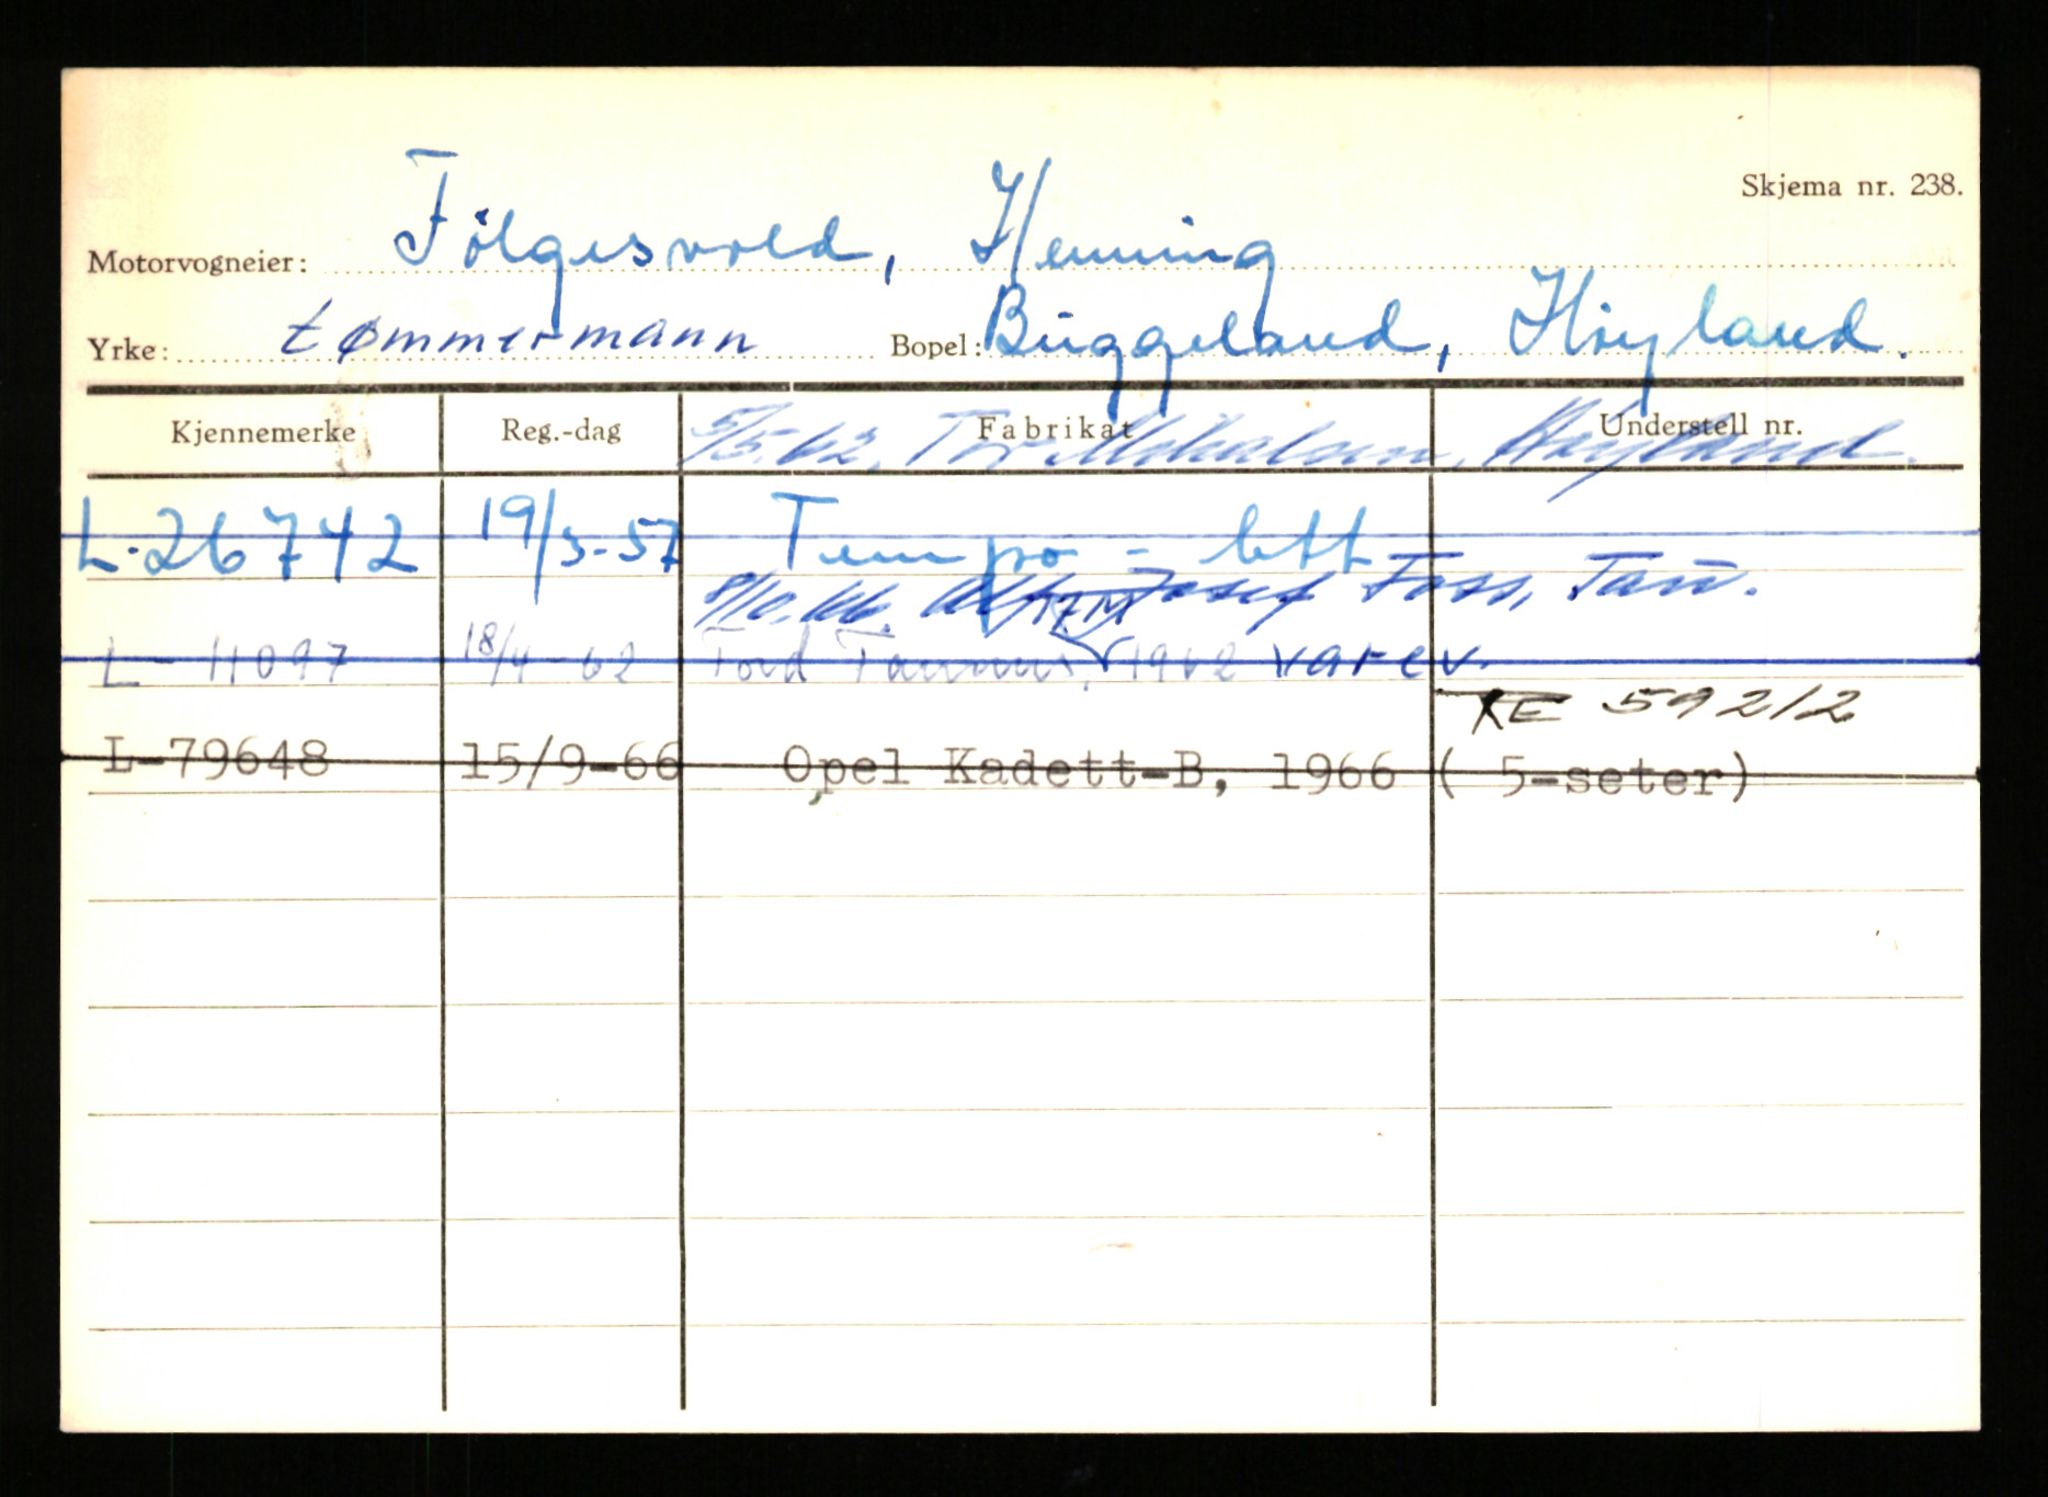 Skjema nr. 238.
Motorvogneier: Fölgesvold, Henning
Yrke: tømmermann Bopel: Büggeland, Höyland.
Kjennemerke Reg.-dag Fabrikat Understell nr.
5/5.62, Tor Mikalsen, Høyland.
L-26742 19/3-57 Tempo - lett
Josef Foss, Tau.
17M
L-11097 18/4-62 Ford Taunus, 1962 varev.
KE 59212
L-79648 15/9-66 Opel Kadett-B, 1966 ( 5-seter)